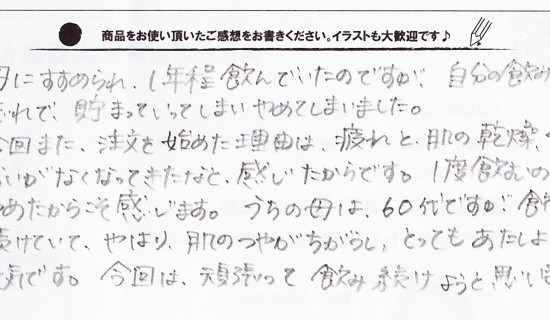 商品をお使い頂いたご感想をお書きください。イラストも大歓迎です♪
母にすすめられ、1年程飲んでいたのですが、自分の飲み
忘れで、貯まっていってしまいやめてしまいました。
今回また、注文を始めた理由は、疲れと、肌の乾燥、
いがなくなってきたなと、感じたからです。1度飲むの
やめたからこそ感じます。うちの母は、60代ですが飲
続けていて、やはり、肌のつやがちがうし、とってもあたしよ
元気です。今回は、頑張って飲み続けようと思い